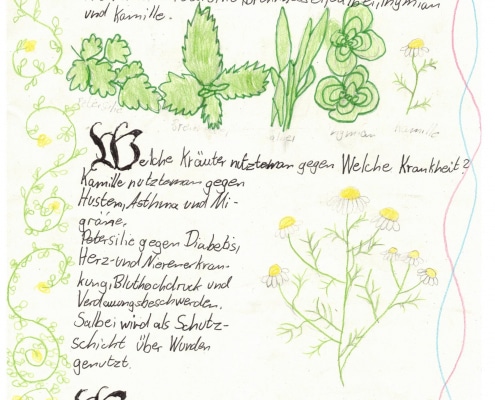 und Kamille.
Petersilie
Salbei
Thymian
Kamille
Welche Kräuter nutzte man gegen Welche Krankheit?
Kamille nutzte man gegen
Husten, Asthma und Mi-
gräne.
Petersilie gegen Diabetis,
Herz- und Nierenerkran-
kung, Bluthochdruck und
Verdauungsbeschwerden.
Salbei wird als Schutz-
schicht über Wunden
genutzt.